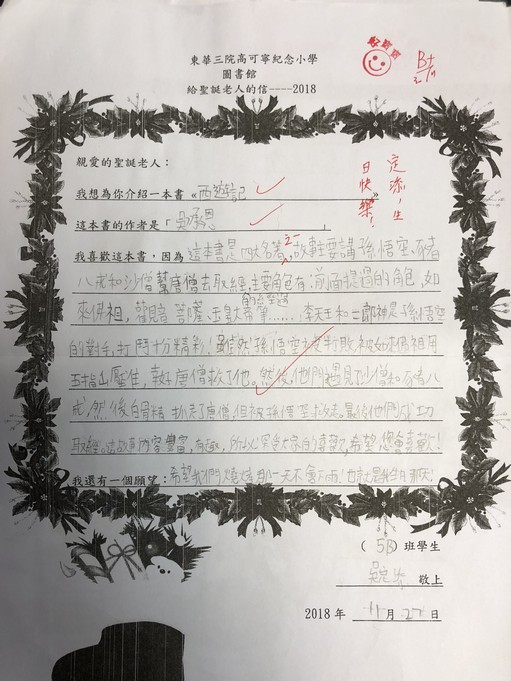 東華三院高可寧紀念小學
圖書館
給聖誕老人的信----2018
B+
定添!生
日快樂!
親愛的聖誕老人:
我想為你介紹一本書《西遊記
這本書的作者是「吳承恩」
我喜歡這本書,因為 這本書是四大名著之一,故事主要講孫悟空、豬
八戒和沙僧幫唐僧去取經,主要角色有:前面提過的角色,如
來佛祖,觀音菩薩、玉皇大帝等……李天王和二郎神是孫悟空
的對手,打鬥十分精彩!雖然孫悟空被如來佛祖用
五指山壓住,幸好唐僧救了他。然後,他們遇見了沙僧和豬八
戒,然後白骨精抓走了唐僧,但被孫悟空救走。最後他們成功
取經。這故事內容豐富,有趣,所以
希望您會喜歡!
我還有一個願望:希望我們
天不會下雨!也就是我生日那天!
( 5B ) 班學生
敬上
2018 年 11 月 27 日